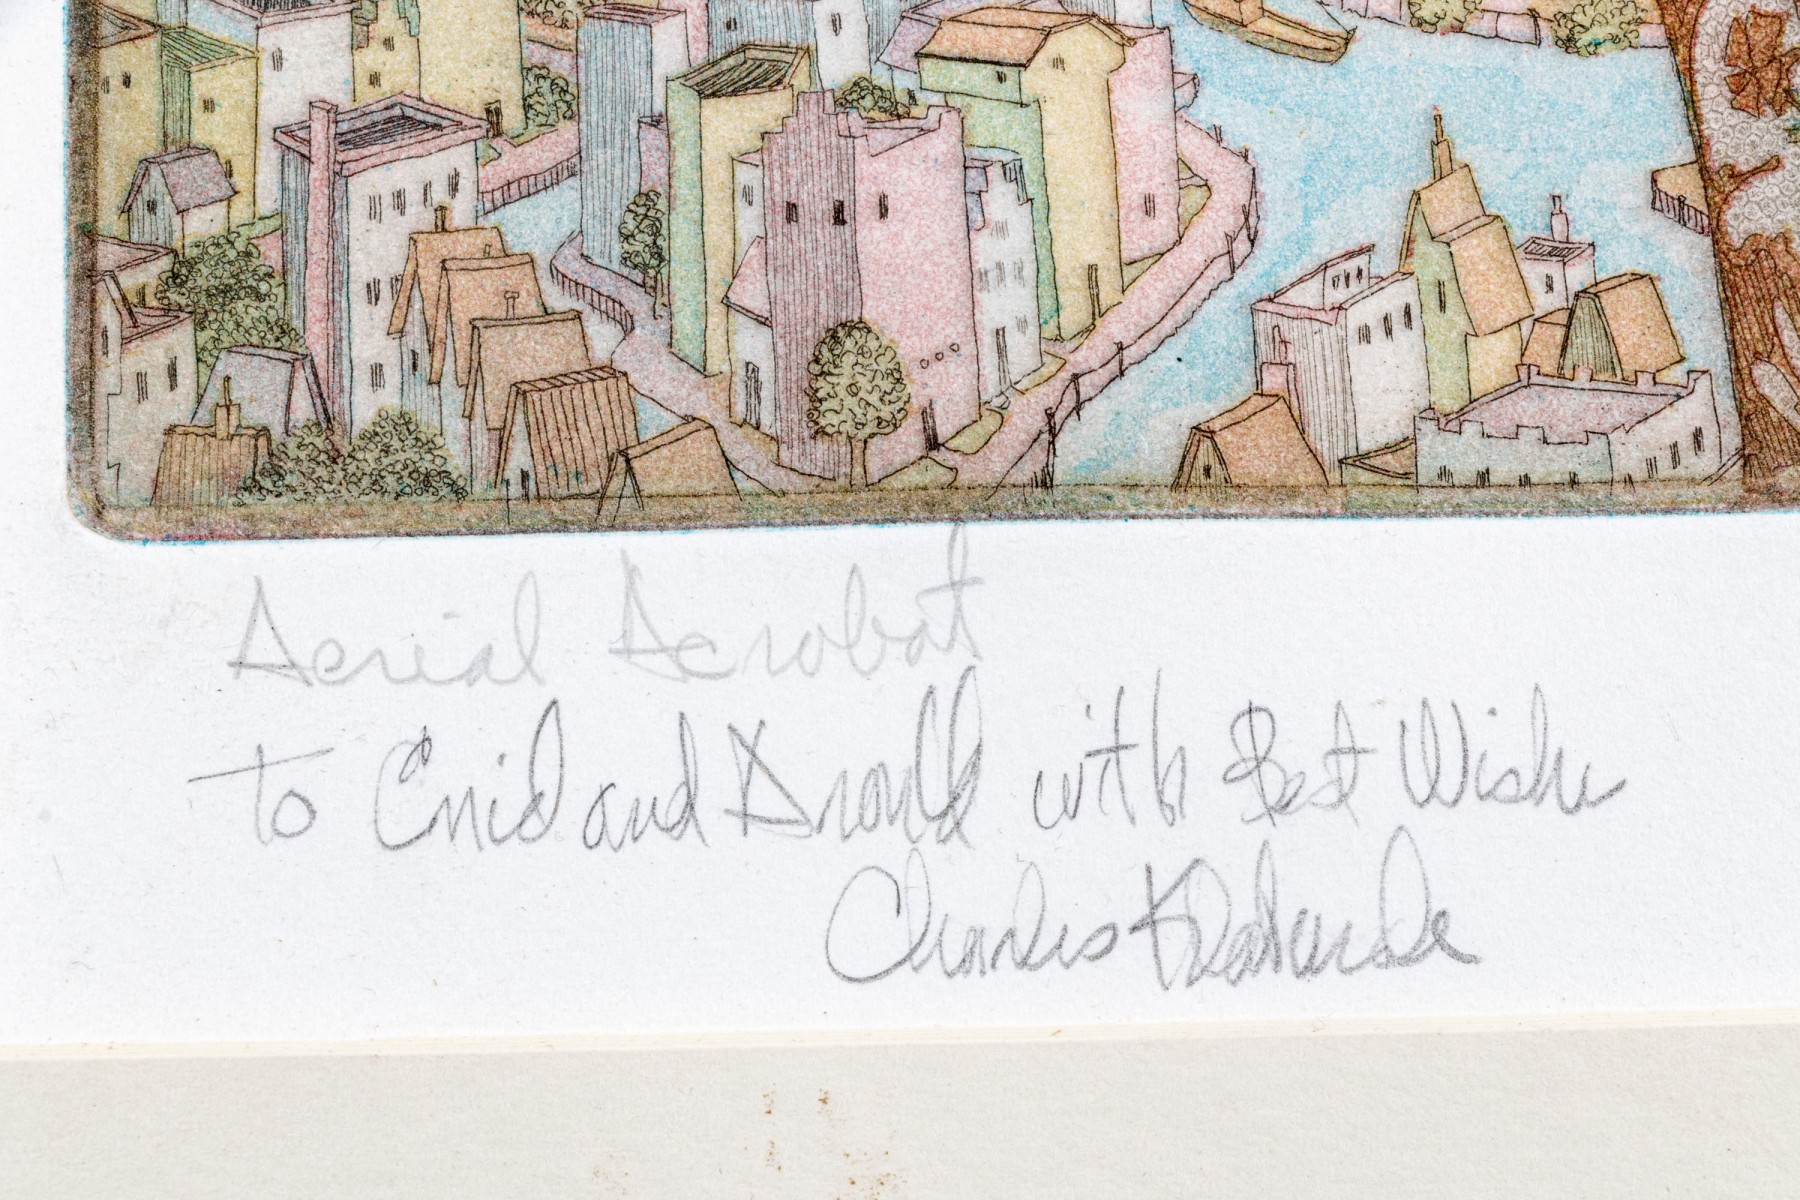 Aerial Acrobat
to Enid and Arnold with Best Wishes
Charles Klabunde